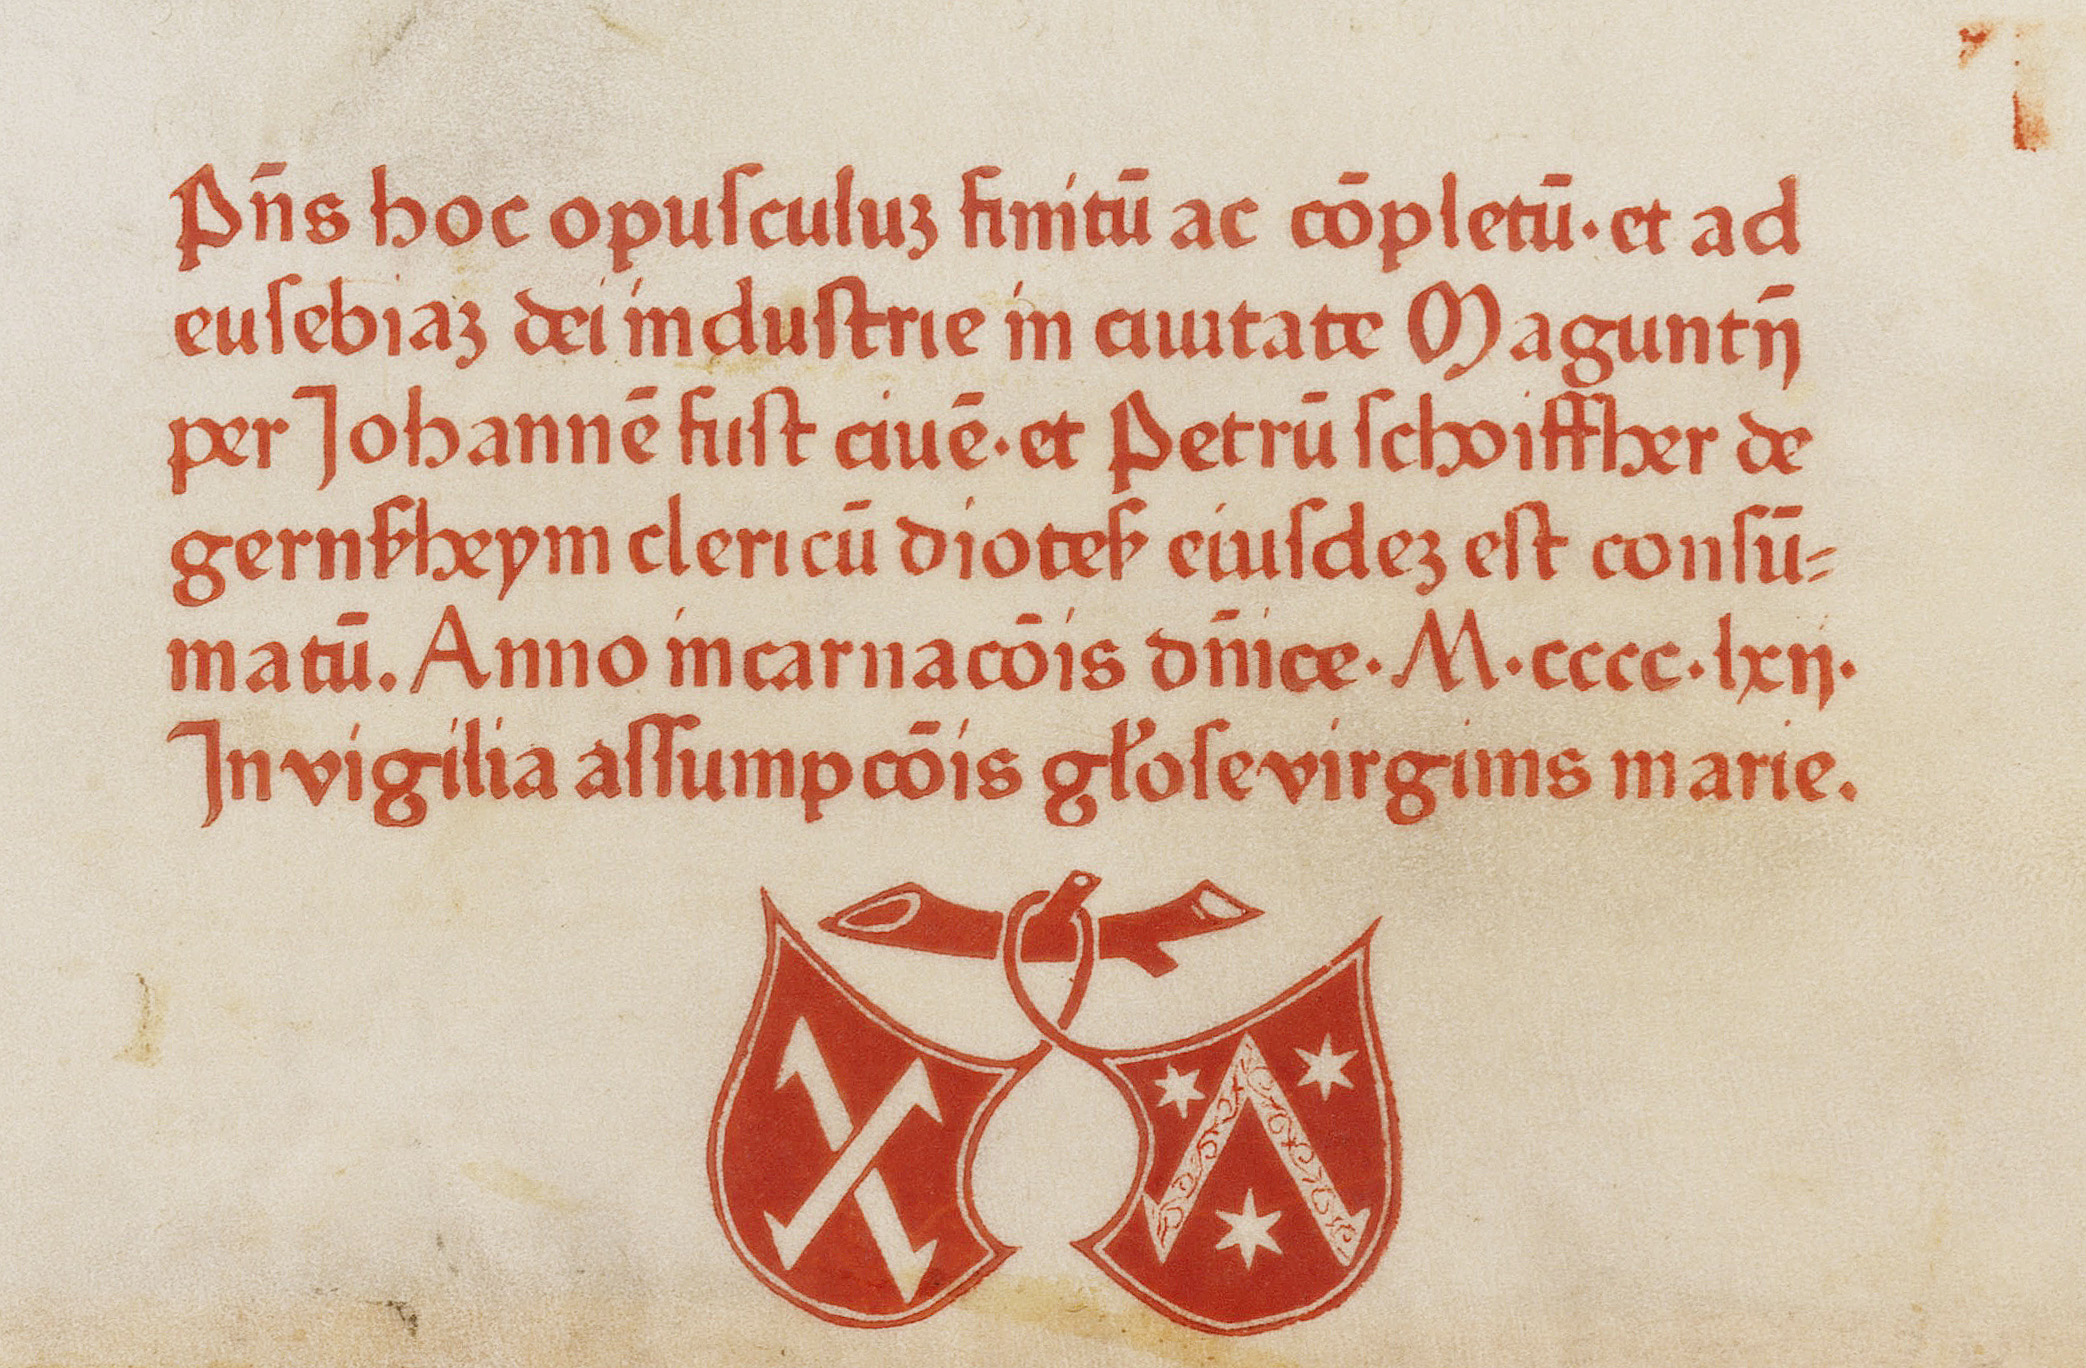 Pn̄s hoc opuſculuꝫ finitū ac cōpletū· et ad
euſebiaꝫ dei induſtrie in ciuitate Maguntn̄
per Johannē fuſt ciuē· et Petrū ſchoiffher de
gernſzheym clericū dioteſ eiuſdeꝫ eſt conſū⸗
matū. Anno incarnacōis dn̄ice· M·cccc·lxij·
In vigilia aſſumpcōis gl'oſe virginis marie.